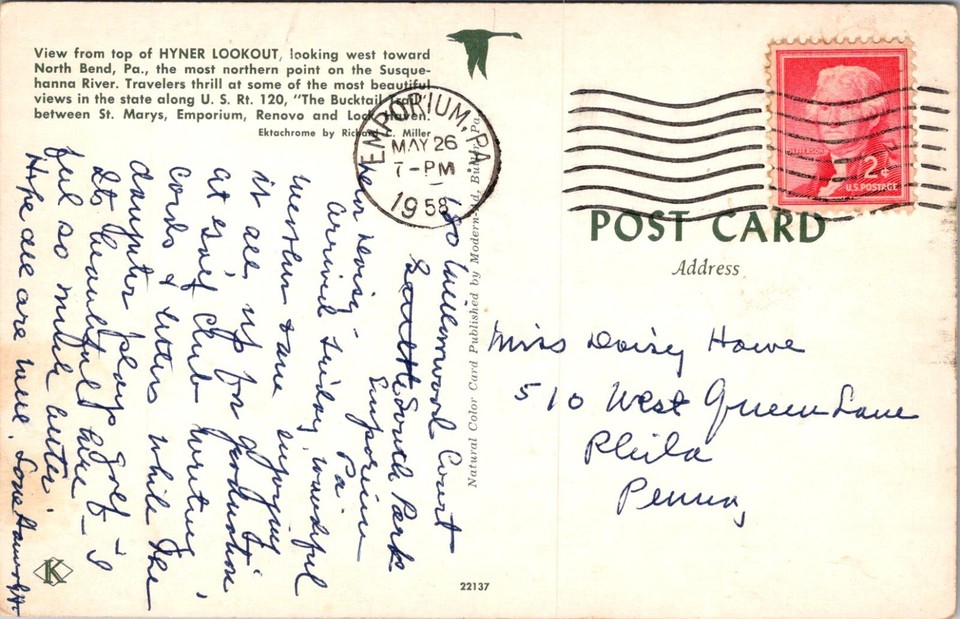 View from top of HYNER LOOKOUT, looking west toward
North Bend, Pa., the most northern point on the Susque-
hanna River. Travelers thrill at some of the most beautiful
views in the state along U. S. Rt. 120, "The Bucktail Trail"
between St. Marys, Emporium, Renovo and Lock Haven.
Ektachrome by Richard C. Miller
EMPORIUM, PA.
MAY 26
7-PM
1958
JEFFERSON
2¢
U.S. POSTAGE
POST CARD
Address
Miss Daisy Howe
510 West Queen Lane
Phila
Penna,
Natural Color Card Published by Modern-Ad, Butler, Pa.
Court
South Park
Emporium
Pa
Arrived Sunday, wonderful
weather & are enjoying
it all, up for graduation
at Golf Club writing
Cards & letters while the
daughter plays golf - I
so beautiful here -
feel so much better
Hope all are well. Love
K
22137